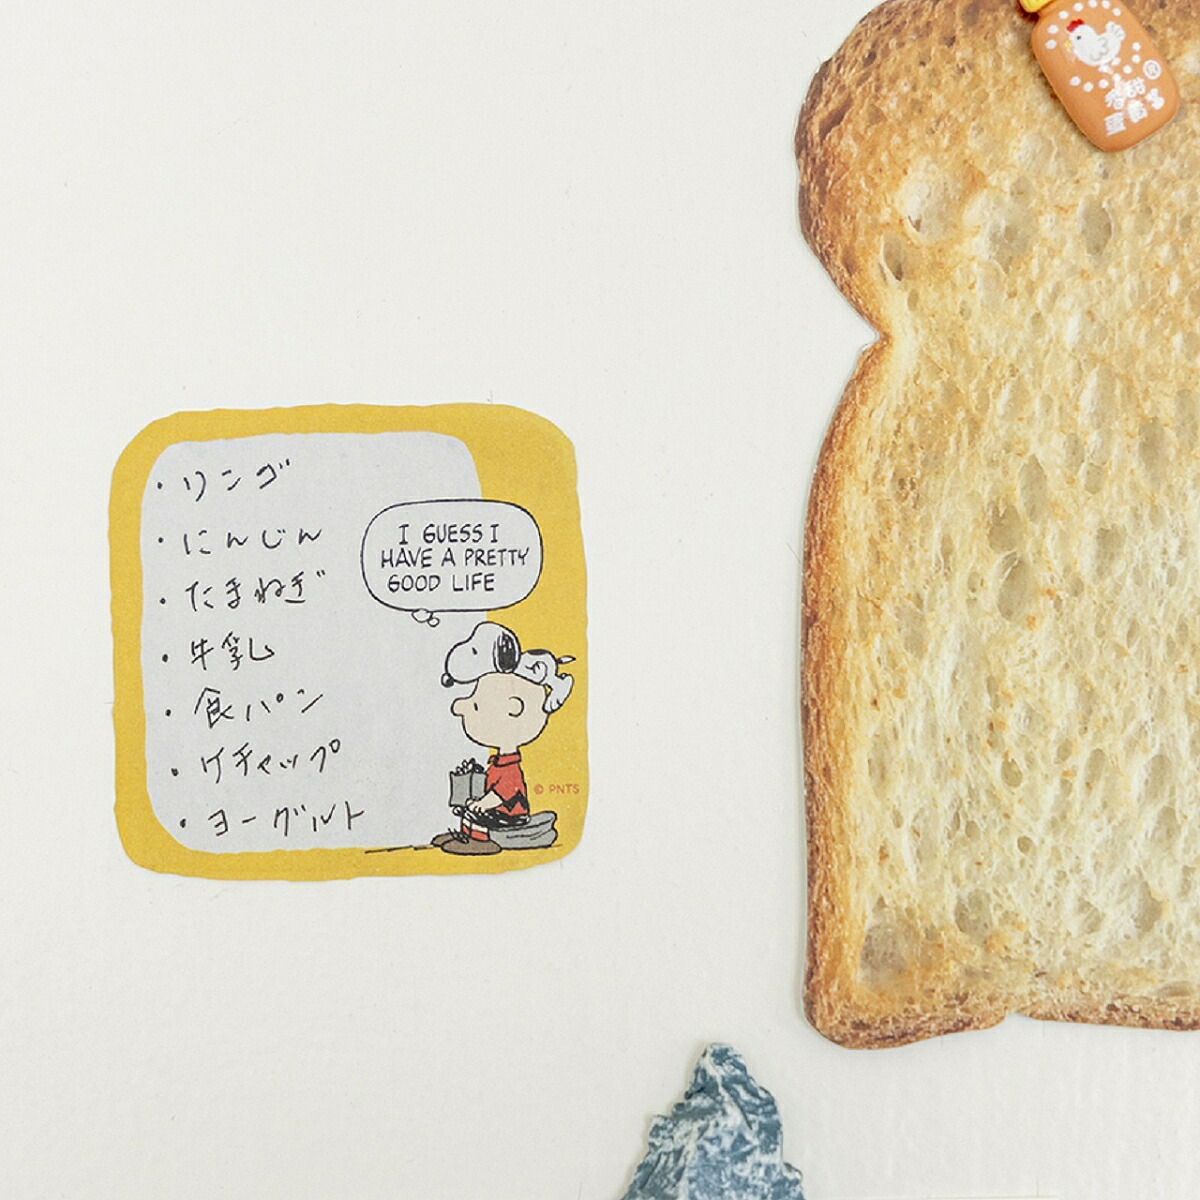 ・リンゴ
・にんじん
・たまねぎ
・牛乳
・食パン
・ケチャップ
・ヨーグルト
I GUESS I
HAVE A PRETTY
GOOD LIFE
© PNTS
®